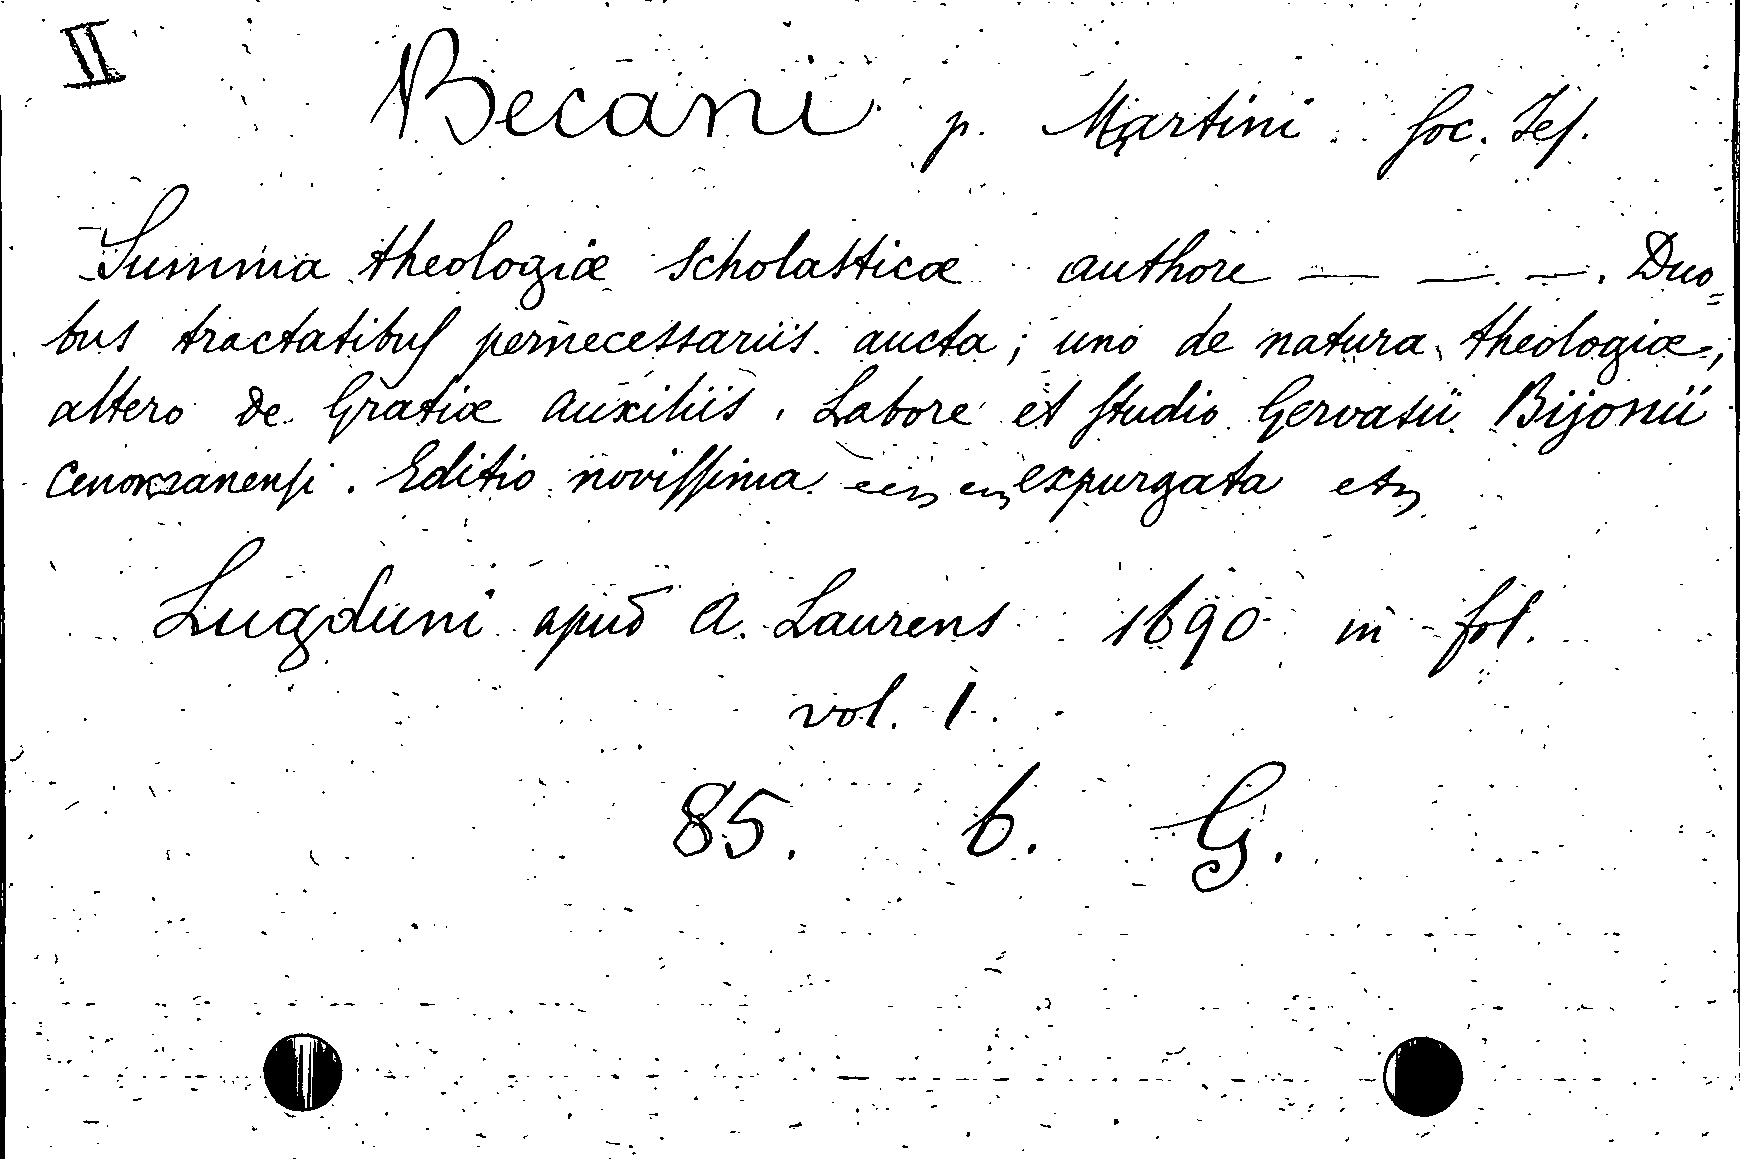 II
Becani p. Martini Soc. Jes.
Summa theologiæ scholasticæ authore — — —. Duo=
bus tractatibus pernecessariis aucta; uno de natura theologiæ,
altero de Gratiæ auxiliis. Labore et studio Gervasii Bijonii
Editio novissima expurgata etc
Lugduni apud A. Laurens 1690 in fol.
vol. 1.
85. b. G.